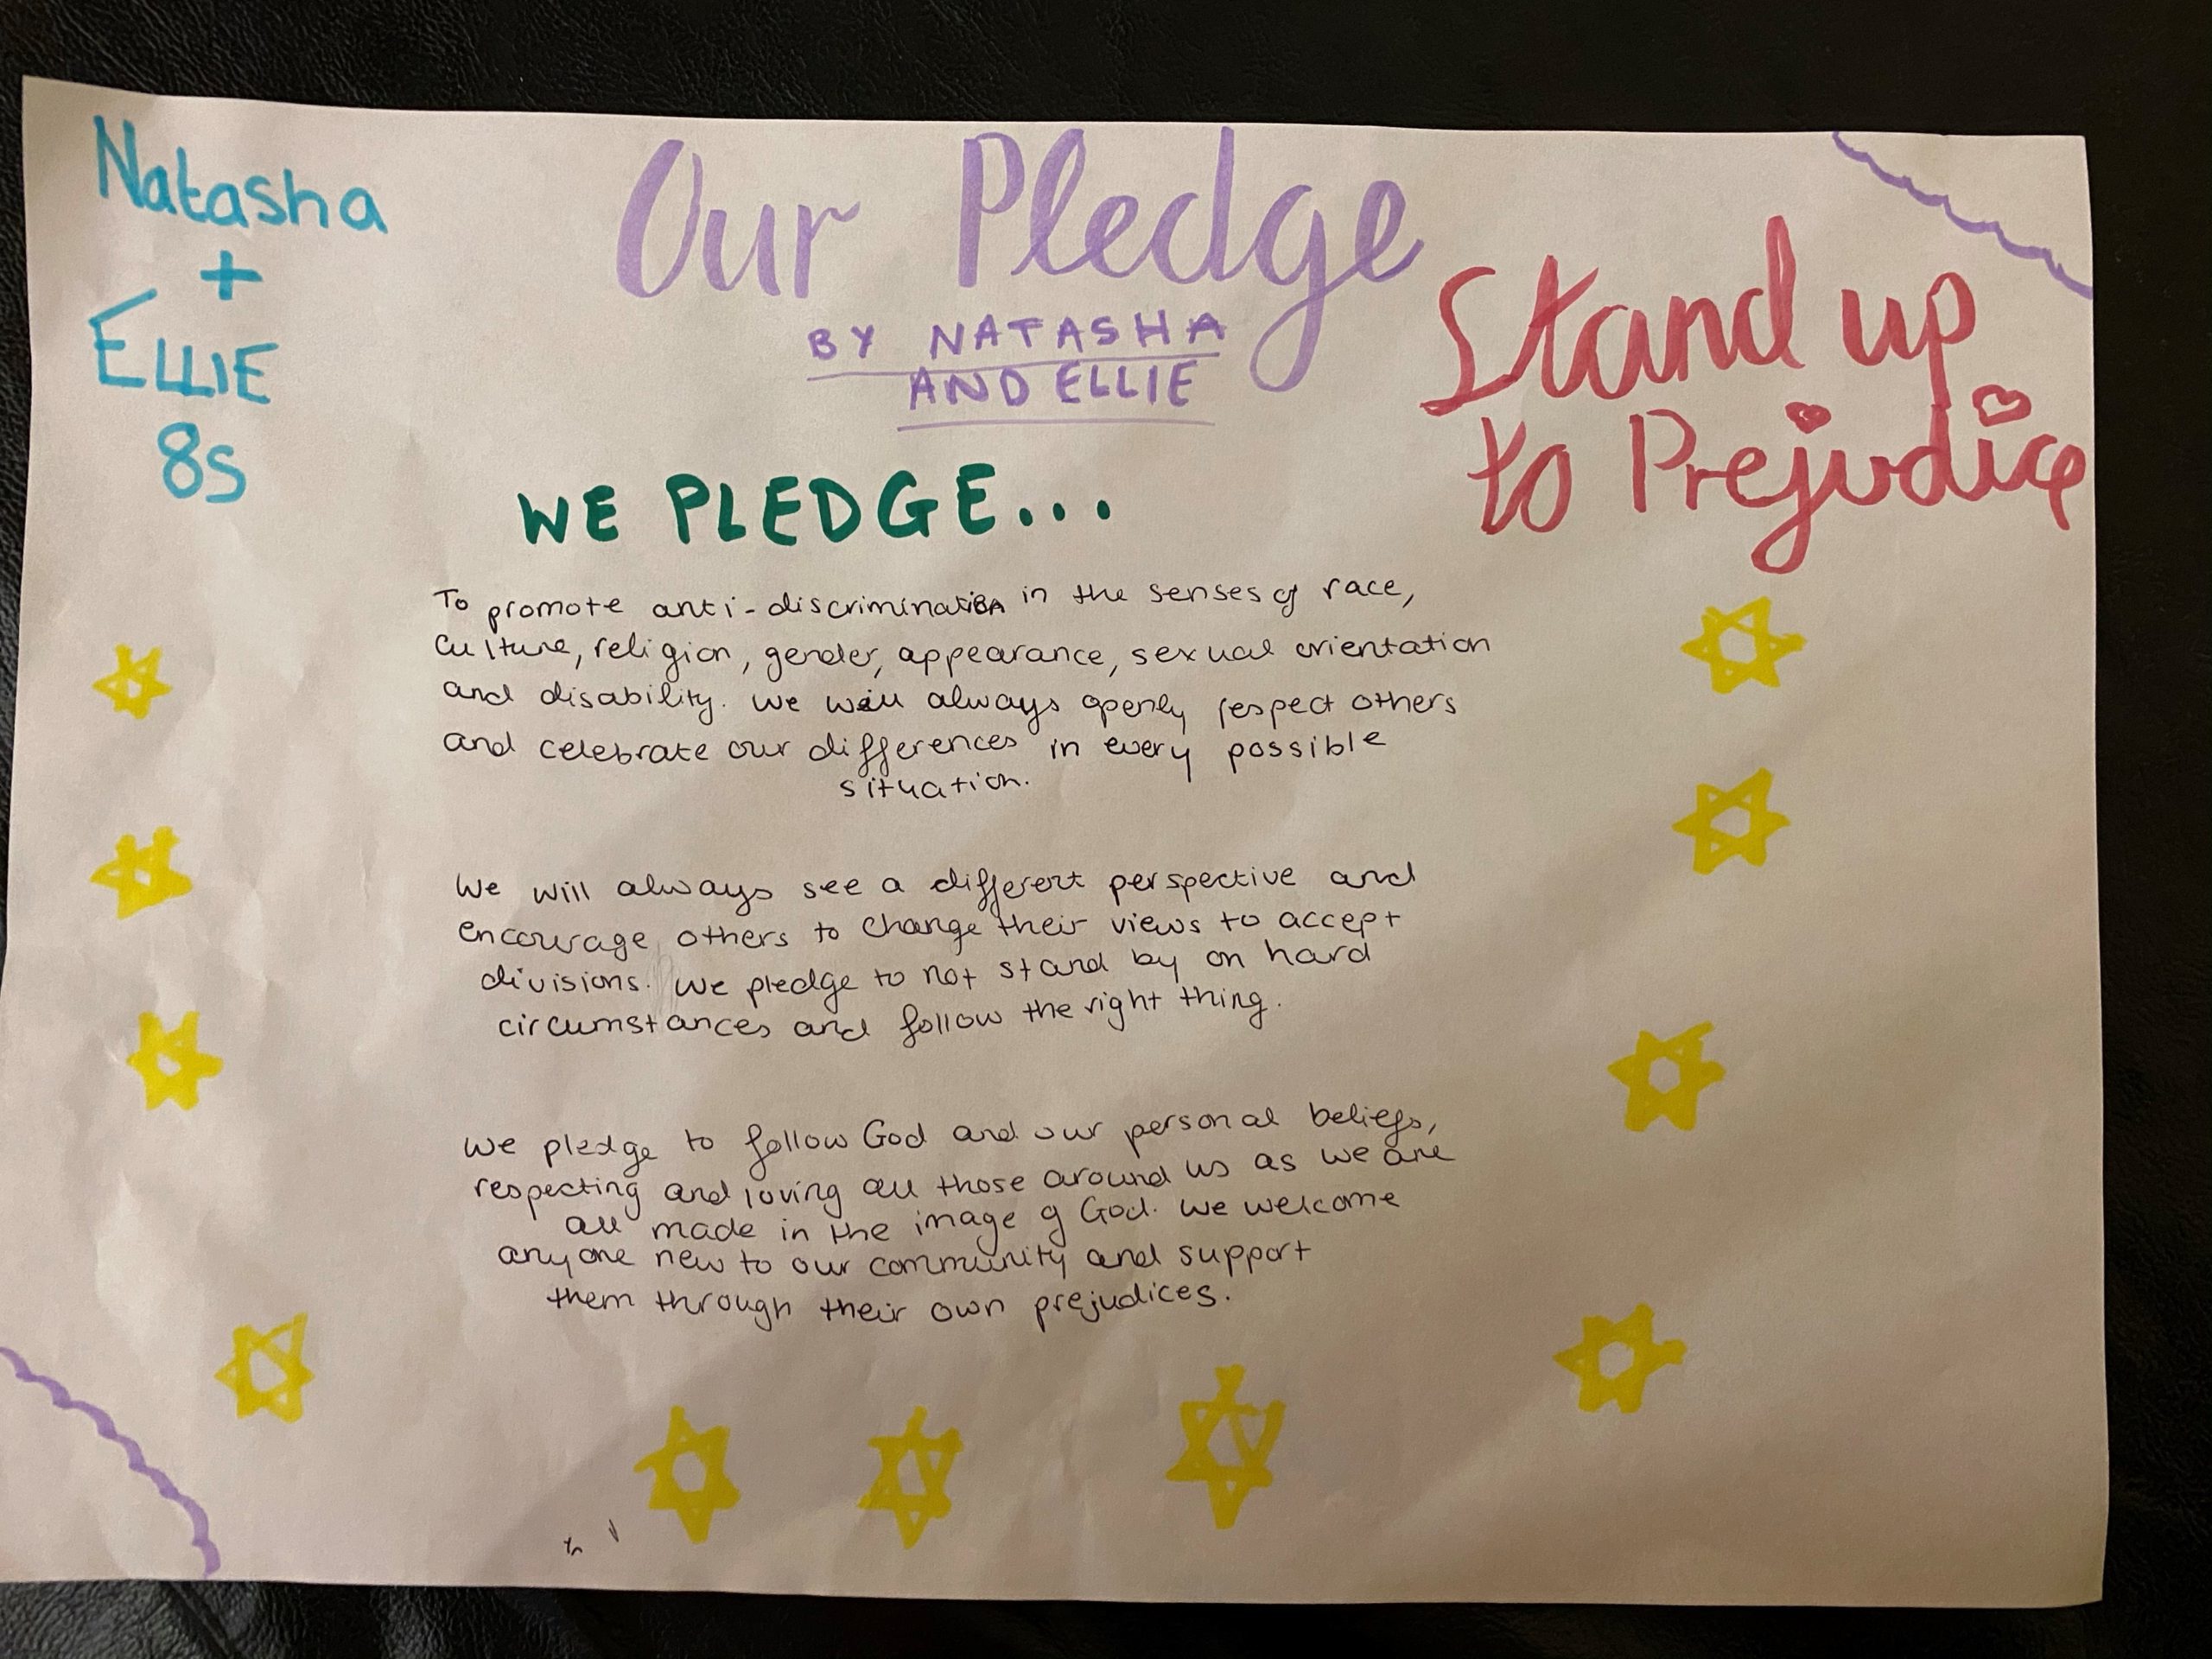 Natasha
+
ELLIE
8S
Our Pledge
BY NATASHA
AND ELLIE
Stand up
to Prejudice
WE PLEDGE...
To promote anti-discrimination in the senses of race,
culture, religion, gender, appearance, sexual orientation
and disability. We will always openly respect others
and celebrate our differences in every possible
situation.
We will always see a different perspective and
encourage others to change their views to accept
divisions. We pledge to not stand by on hard
circumstances and follow the right thing.
We pledge to follow God and our personal beliefs,
respecting and loving all those around us as we are
all made in the image of God. We welcome
anyone new to our community and support
them through their own prejudices.